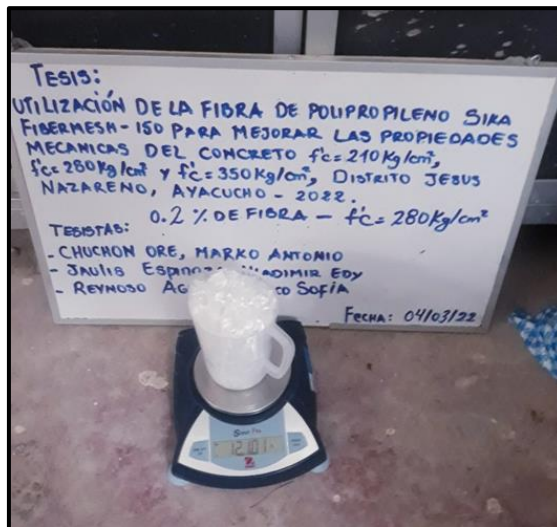 TESIS:
UTILIZACIÓN DE LA FIBRA DE POLIPROPILENO SIKA
FIBERMESH-150 PARA MEJORAR LAS PROPIEDADES
MECANICAS DEL CONCRETO f'c=210Kg/cm²,
f'c=280Kg/cm² Y f'c=350Kg/cm², DISTRITO JESUS
NAZARENO, AYACUCHO - 2022.
0.2 % DE FIBRA - f'c=280Kg/cm²
TESISTAS:
- CHUCHON ORE, MARKO ANTONIO
- JAULIS EDY
- REYNOSO SOFÍA
FECHA: 04/03/22